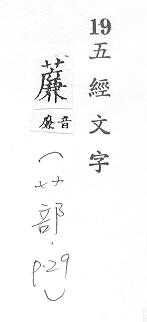 19 五經文字
薕
音廉
(艹部. p.29)